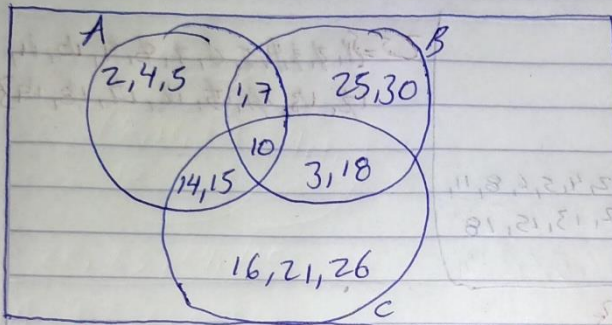 A
B
2,4,5
1,7
25,30
10
14,15
3,18
16,21,26
C